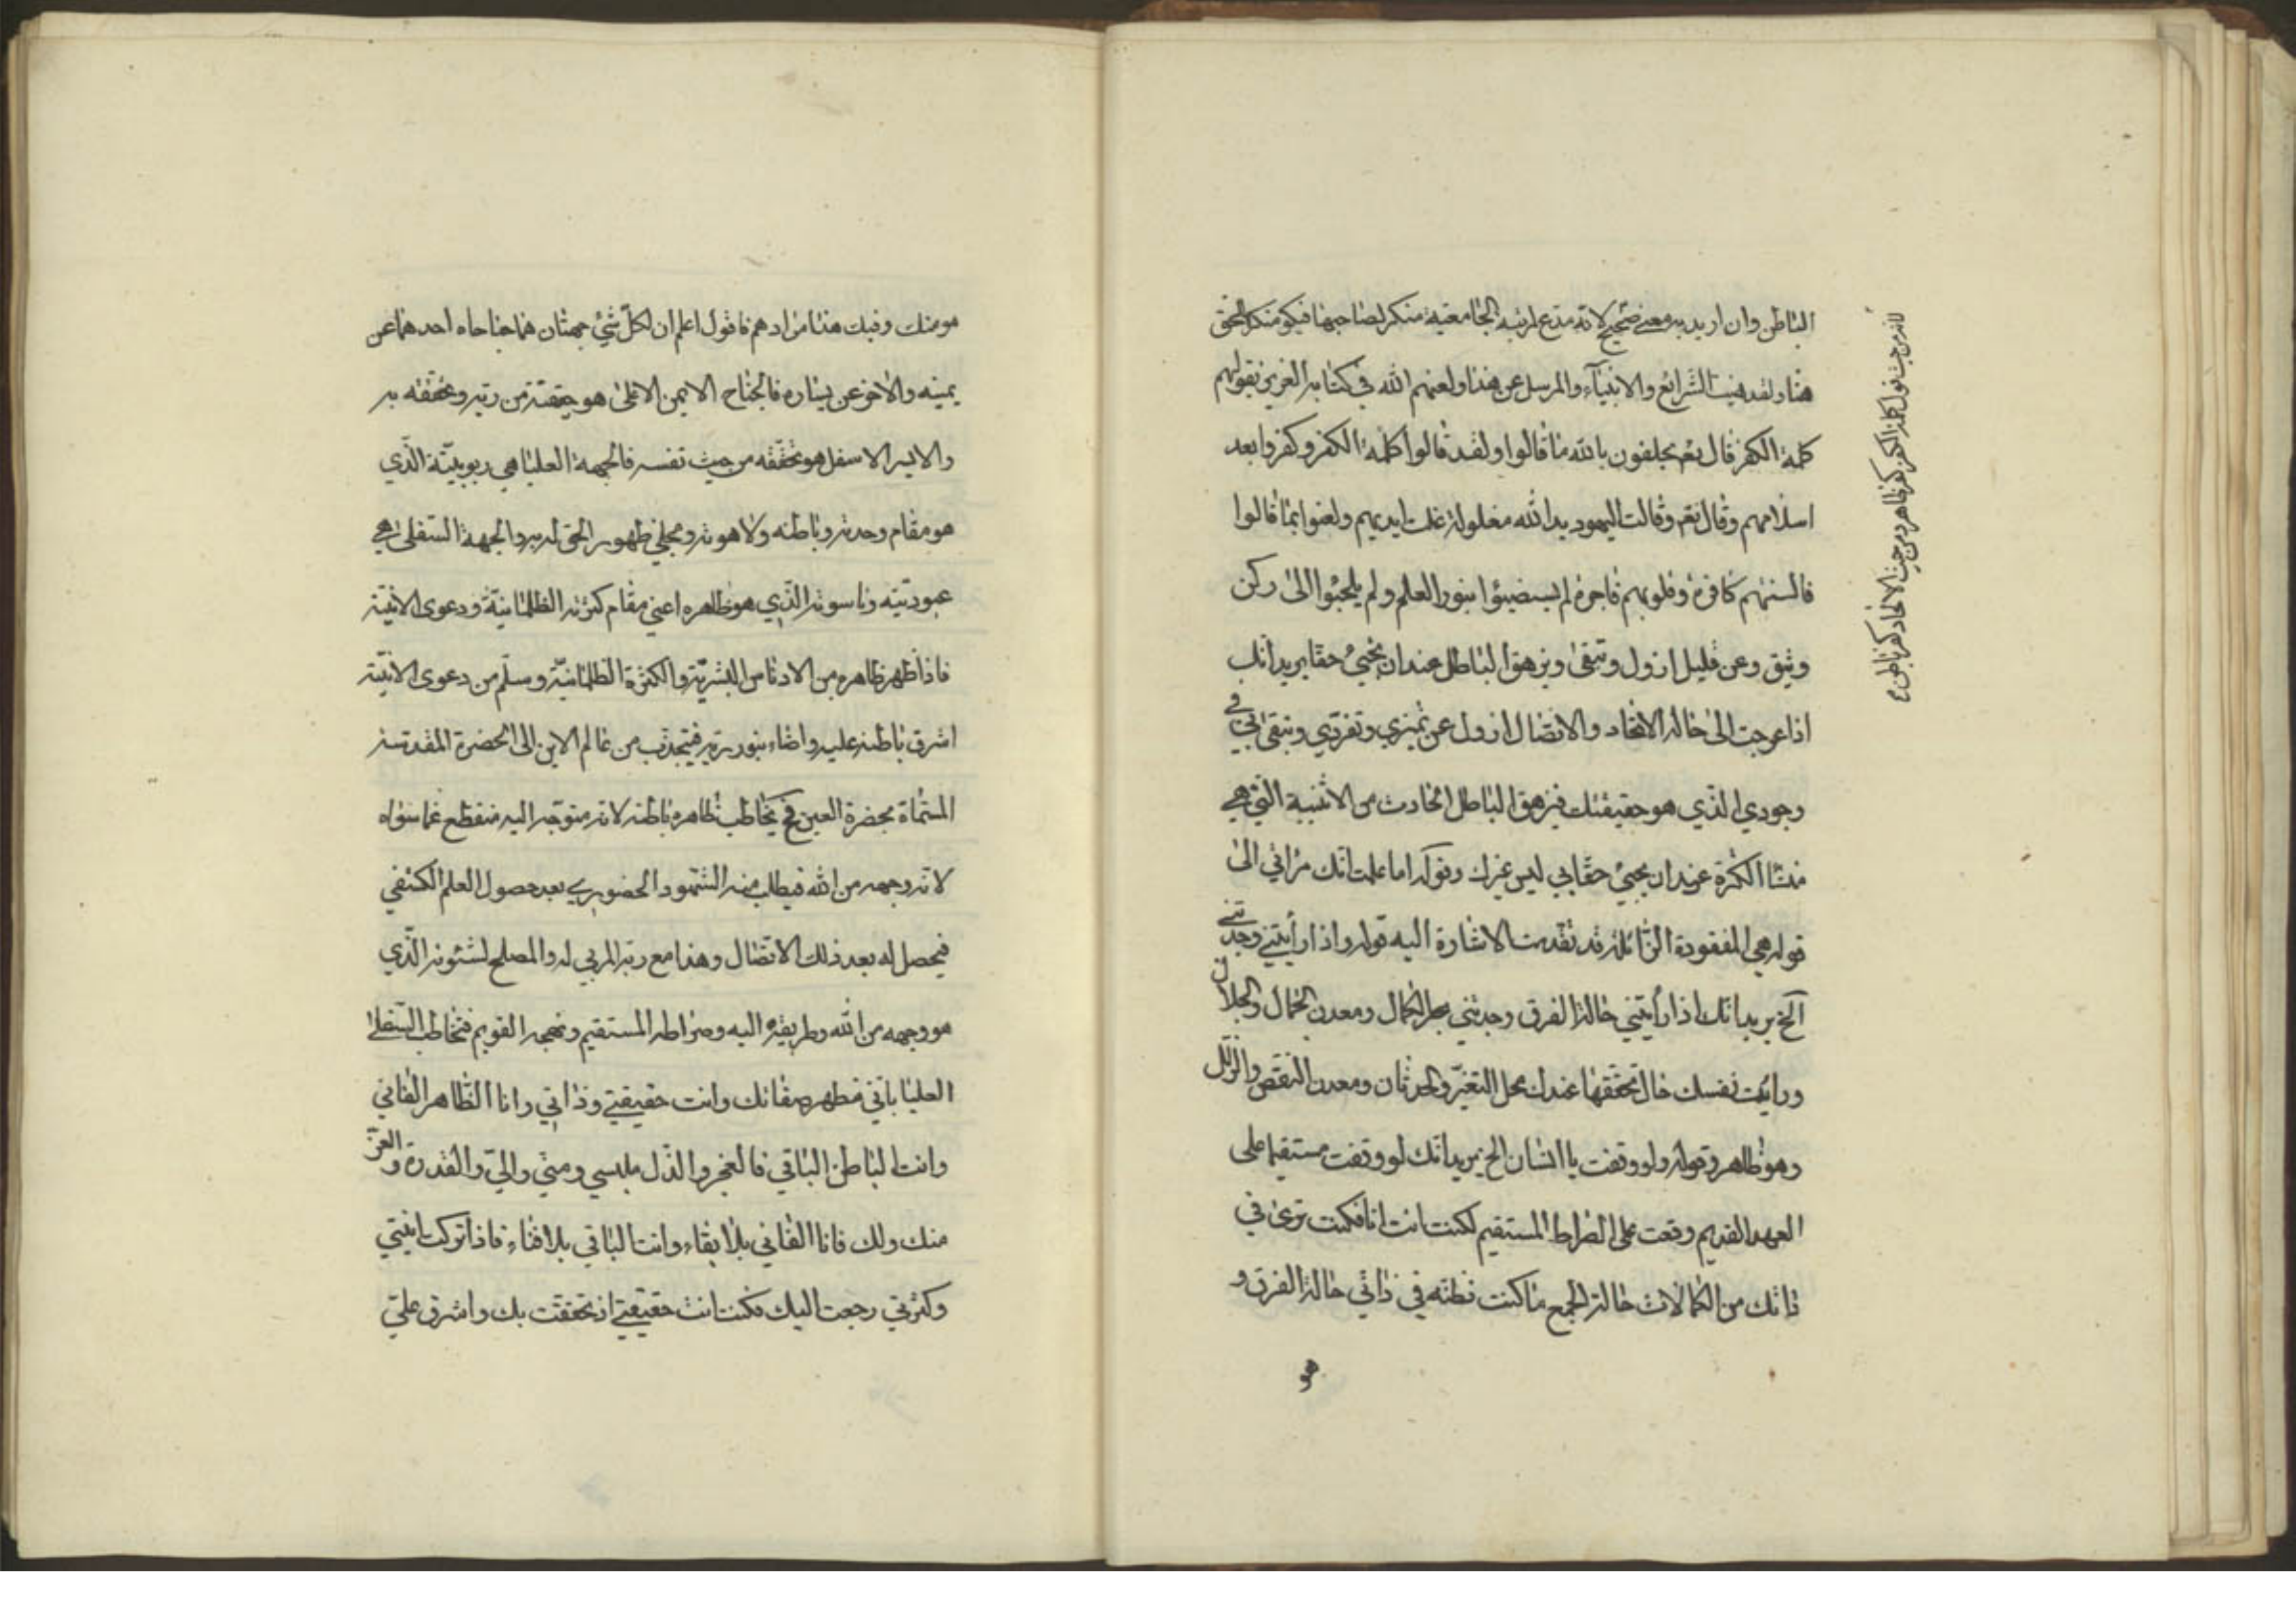 الباطن وان اريد به معنى صحيح لانه مدع لمرتبة الجامعية منكر لصاحبها فيكو منكر الحق
هنا ولقد نهيت الشرائع والانبياء والمرسل عن هذا ولعنهم الله في كتابه العزيز بقولهم
كلمة الكفر قال تعم يحلفون بالله ما قالوا ولقد قالوا كلمة الكفر وكفروا بعد
اسلامهم وقال تعم وقالت اليهود يد الله مغلولة غلت ايديهم ولعنوا بما قالوا
فالسنتهم كافرة وقلوبهم فاجرة لم يستضيئوا بنور العلم ولم يلجئوا الى ركن
وثيق وعن قليل ازول وتبقى ويزهق الباطل عند ان يجيئ حقا يريد انك
اذا عرجت الى حالة الاتحاد والاتصال ازول عن تميزي وتفردي وتبقى اني في
وجودي الذي هو حقيقتك فيزهق الباطل الحادث من الاثنينية التي هي
منشا الكثرة عند ان يجيئ حقا بي ليس غيرك وقوله اما علمت انك مرآتي الى
قوله هي المفقودة الزائلة قد تقدمت الاشارة اليه قوله واذا رأيتني وجدتني
آلخ يريد انك اذا رأيتني حالة الفرق وجدتني بحر الكمال ومعدن الجمال والجلال
ورايت نفسك حال تحققها عندك محل التغير والحدثان ومعدن النقص والزلل
وهو ظاهر وقوله ولو وقفت يا انسان الخ يريد انك لو وقفت مستقيما على
العهد القديم وقعت على الصراط المستقيم لكنت انت انا فكنت ترى في
ذاتك من الكمالات حالة الجمع ما كنت تظنه في ذاتي حالة الفرق و
هو
لانه من حيث قول كلمة الكفر كفر ظاهر ومن حيث الاتحاد كفر باطن ع
هو منك وفيك هذا مرادهم فاقول اعلم ان لكل شئ جهتان هما جناحاه احدهما عن
يمينه والاخر عن يساره فالجناح الايمن الاعلى هو حقيقته من ربه وتحققه به
والايسر الاسفل هو تحققه من حيث نفسه فالجهة العليا هي ربوبيته الذي
هو مقام وحدته وباطنه ولاهوته ومجلى ظهور الحق له به والجهة السفلى هي
عبوديته وناسوته الذي هو ظاهره اعني مقام كثرته الظلمانية ودعوى الانية
فاذا ظهر ظاهره من الادناس البشرية والكثرة الظلمانية وسلم من دعوى الانية
اشرق باطنه عليه واضاء بنور ربه فيتجذب من عالم الاين الى الحضرة المقدسة
المسماة بحضرة العين فح يخاطب ظاهره باطنه لانه متوجه اليه منقطع عما سواه
لانه وجهه من الله فيطلب منه الشهود الحضوري بعد حصول العلم الكشفي
فيحصل له بعد ذلك الاتصال وهذا مع ربه المربي له والمصلح لشئونه الذي
هو وجهه من الله وطريقه اليه وصراطه المستقيم ونهجه القويم فتخاطب السفلى
العليا باني مظهر صفاتك وانت حقيقتي وذاتي وانا الظاهر الفاني
وانت الباطن الباقي فالعجز والذل ملبسي ومني والي والقدرة والعز
منك ولك فانا الفاني بلا بقاء وانت الباقي بلا فناء فاذا تركت انيتي
وكثرتي رجعت اليك فكنت انت حقيقتي اذ تحققت بك واشرق علي